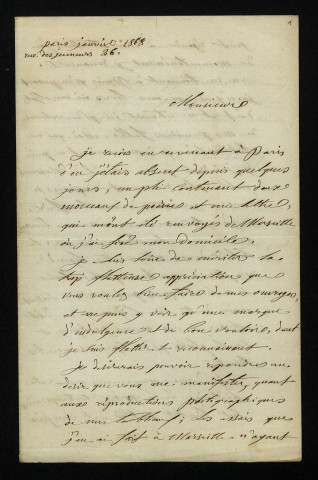 1
paris janvier 1868
rue des jeuneurs 36.
Monsieur
je reçois en revenant à Paris
d'où j'étais absent depuis quelques
jours, un pli contenant deux
morceaux de poésie et une lettre
qui m'ont été renvoyés de Marseille
où j'ai fixé mon domicile.
je suis loin de mériter la
trop flatteuse appréciation que
vous voulez bien faire de mes ouvrages,
et ne puis y voir qu'une marque
d'indulgence et de bon vouloir, dont
je suis flatté et reconnaissant.
je désirerais pouvoir répondre au
désir que vous me manifestez, quant
aux reproductions photographiques
de mes tableaux; les essais que
j'en ai fait à Marseille n'ayant